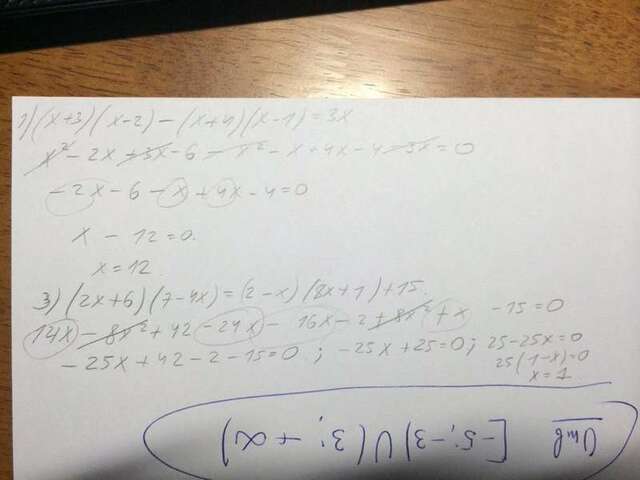 1) (x+3)(x-2)-(x+4)(x-1)=3x
x²-2x+3x-6-x²-x+4x-4-3x=0
-2x-6-x+4x-4=0
x-12=0.
x=12
3) (2x+6)(7-4x)=(2-x)(8x+1)+15.
14x-8x²+42-24x-16x-2+8x²+x-15=0
-25x+42-2-15=0; -25x+25=0; 25-25x=0
25(1-x)=0
x=1
Отв [-5;-3)U(3;+∞)